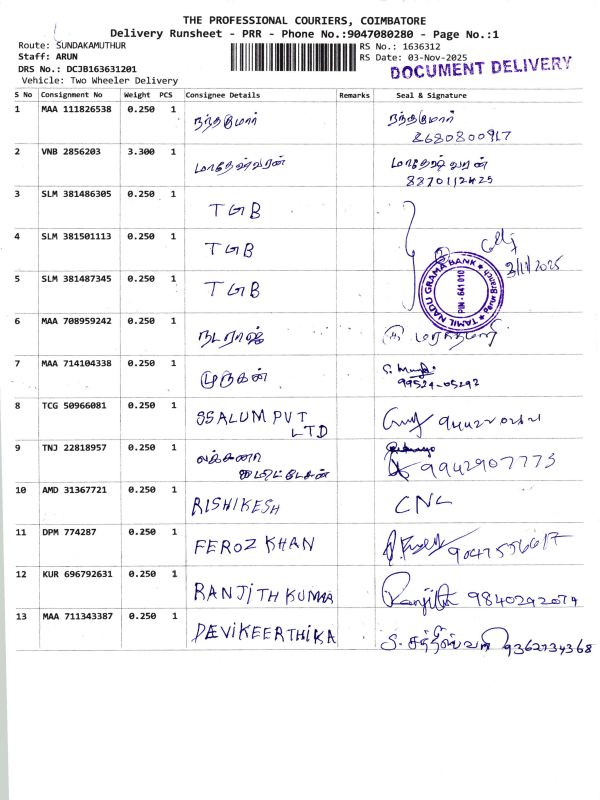 THE PROFESSIONAL COURIERS, COIMBATORE
Delivery Runsheet - PRR - Phone No.:9047080280 - Page No.:1
Route: SUNDAKAMUTHUR
RS No.: 1636312
Staff: ARUN
RS Date: 03-Nov-2025
DRS No.: DCJB163631201
DOCUMENT DELIVERY
Vehicle: Two Wheeler Delivery
S No Consignment No Weight PCS Consignee Details Remarks Seal & Signature
1 MAA 111826538 0.250 1 நந்தகுமார் நந்தகுமார்
8680800917
2 VNB 2856203 3.300 1 மாதேஷ்வரன் மாதேஷ்வரன்
3 SLM 381486305 0.250 1 TGB
4 SLM 381501113 0.250 1 TGB
3/11/2025
TAMIL NADU GRAMA BANK
PIN - 641 010
5 SLM 381487345 0.250 1 TGB
6 MAA 708959242 0.250 1 நடராஜ்
7 MAA 714104338 0.250 1 முருகன்
99524-05292
8 TCG 50966081 0.250 1 SSALUM PVT
LTD
9 TNJ 22818957 0.250 1
9942907773
10 AMD 31367721 0.250 1 RISHIKESH CNC
11 DPM 774287 0.250 1 FEROZ KHAN 9047556617
12 KUR 696792631 0.250 1 RANJITH KUMAR Ranjith 9840292079
13 MAA 711343387 0.250 1 DEVIKEERTHIKA 9362734368